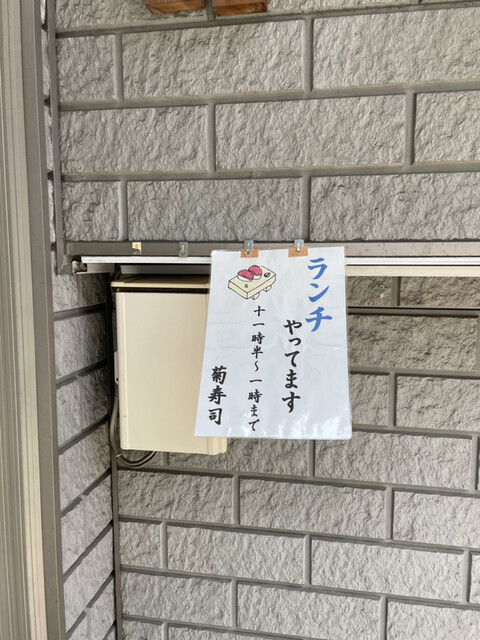 ランチ
やってます
十一時半～一時まで
菊寿司